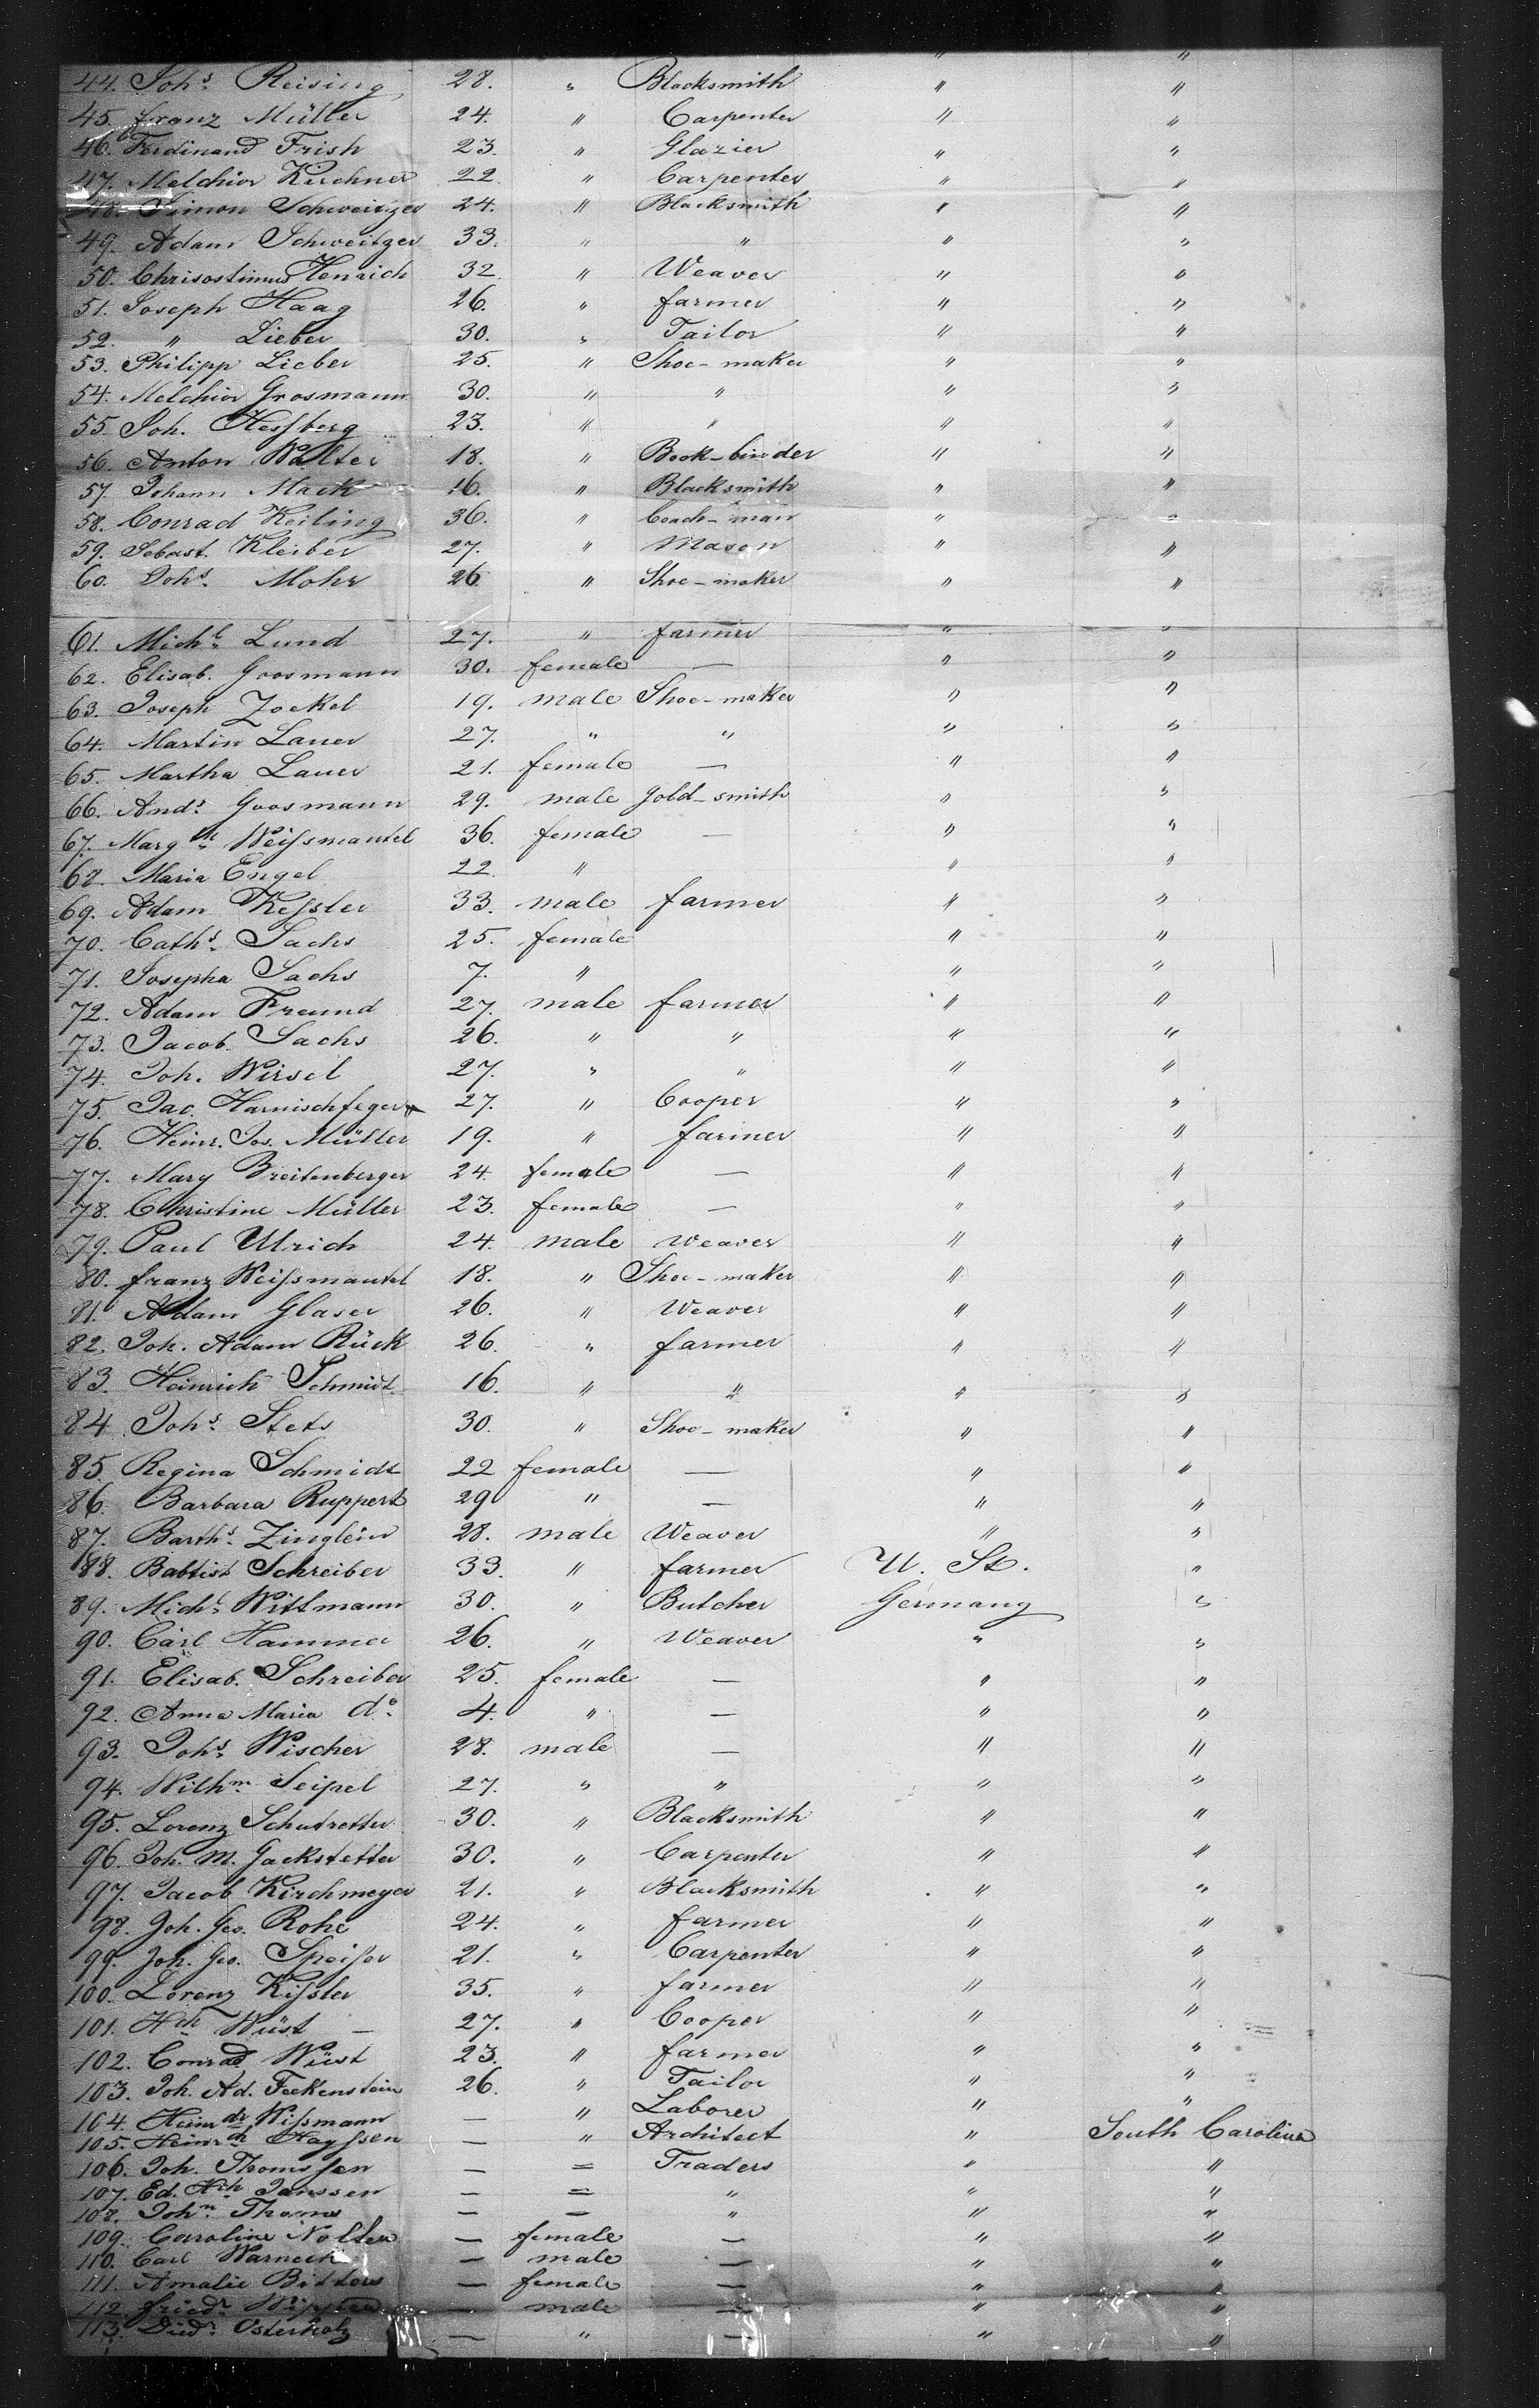 " "
44. Johs. Reising 28. " Blacksmith " "
45. franz Müller 24. " Carpenter " "
46. Ferdinand Frish 23. " Glazier " "
47. Melchior Kirchner 22. " Carpenter " "
48. Simon Schweitzer 24. " Blacksmith " "
49. Adam Schweitzer 33. " " " "
50. Chrisostimus Henrich 32. " Weaver " "
51. Joseph Haag 26. " farmer " "
52. " Lieber 30. " Tailor " "
53. Philipp Lieber 25. " Shoe-maker " "
54. Melchior Grosmann 30. " " " "
55. Joh. Heſsberg 23. " " " "
56. Anton Walter 18. " Book-binder " "
57. Johann Mack 16. " Blacksmith " "
58. Conrad Keiling 36. " Coach-man " "
59. Sebast. Kleiber 27. " Mason " "
60. Johs. Mohr 26 " Shoe-maker " "
61. Michl. Lund 27. " farmer " "
62. Elisab. Grosmann 30. female — " "
63. Joseph Zockel 19. male Shoe-maker " "
64. Martin Lauer 27. " " " "
65. Martha Lauer 21. female — " "
66. Ands. Grosmann 29. male Gold-smith " "
67. Marg th. Weiſsmantel 36. female — " "
68. Maria Engel 22. " " "
69. Adam Keſsler 33. male farmer " "
70. Caths. Sachs 25. female " "
71. Josepha Sachs 7. " " "
72. Adam Freund 27. male farmer " "
73. Jacob Sachs 26. " " " "
74. Joh. Wirsel 27. " " " "
75. Jac. Harnischfeger 27. " Cooper " "
76. Heinr. Jos. Müller 19. " farmer " "
77. Mary Breitenberger 24. female — " "
78. Christine Müller 23. female — " "
79. Paul Ulrich 24. male Weaver " "
80. franz Weiſsmantel 18. " Shoe-maker " "
81. Adam Glaser 26. " Weaver " "
82. Joh. Adam Rück 26. " farmer " "
83. Heinrich Schmidt 16. " " " "
84. Johs. Stets 30. " Shoe-maker " "
85. Regina Schmidt 22 female — " "
86. Barbara Ruppert 29 " — " "
87. Barths. Zinglein 28. male Weaver " "
88. Babtist Schreiber 33. " farmer U. St. "
89. Michl. Wittmann 30. " Butcher Germany "
90. Carl Hammer 26. " Weaver " "
91. Elisab. Schreiber 25. female — " "
92. Anna Maria do. 4. " — " "
93. Johs. Wischer 28. male — " "
94. Wilhm. Seipel 27. " " " "
95. Lorenz Schutretter 30. " Blacksmith " "
96. Joh. M. Gackstetter 30. " Carpenter " "
97. Jacob Kirchmeyer 21. " Blacksmith " "
98. Joh. Geo. Rohe 24. " farmer " "
99. Joh. Geo. Speiſer 21. " Carpenter " "
100. Lorenz Kiſsler 35. " farmer " "
101. Hch Wüst — 27. " Cooper " "
102. Conrad Wüst 23. " farmer " "
103. Joh. Ad. Feckenstein 26. " Tailor " "
104. Heinr Wiſsmann — " Laborer " "
105. Heinr Hayssen — " Architect " South Carolina
106. Joh. Thomsſen — = Traders " "
107. Ed. Hch Janssen — = " " "
108. John. Thoms — — " " "
109. Caroline Nolten — female — " "
110. Carl Warneck — male — " "
111. Amalie Bitters — female — " "
112. friedr. — male — " "
113. Diedr. Osterholz — " — " "